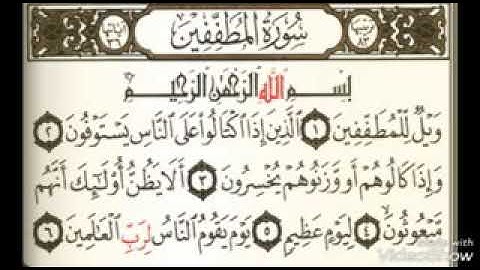 سُورَةُ الْمُطَفِّفِين
ترتيبها ٨٣
آياتها ٣٦
بِسْمِ اللَّهِ الرَّحْمَٰنِ الرَّحِيمِ
وَيْلٌ لِّلْمُطَفِّفِينَ ١ الَّذِينَ إِذَا اكْتَالُوا عَلَى النَّاسِ يَسْتَوْفُونَ ٢
وَإِذَا كَالُوهُمْ أَو وَّزَنُوهُمْ يُخْسِرُونَ ٣ أَلَا يَظُنُّ أُولَٰئِكَ أَنَّهُم
مَّبْعُوثُونَ ٤ لِيَوْمٍ عَظِيمٍ ٥ يَوْمَ يَقُومُ النَّاسُ لِرَبِّ الْعَالَمِينَ ٦
VideoShow